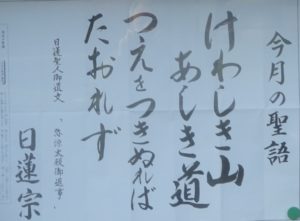 今月の聖語
けわしき山
あしき道
つえをつきぬれば
たおれず
日蓮聖人御遺文
、弥源太殿御返事、
日蓮宗